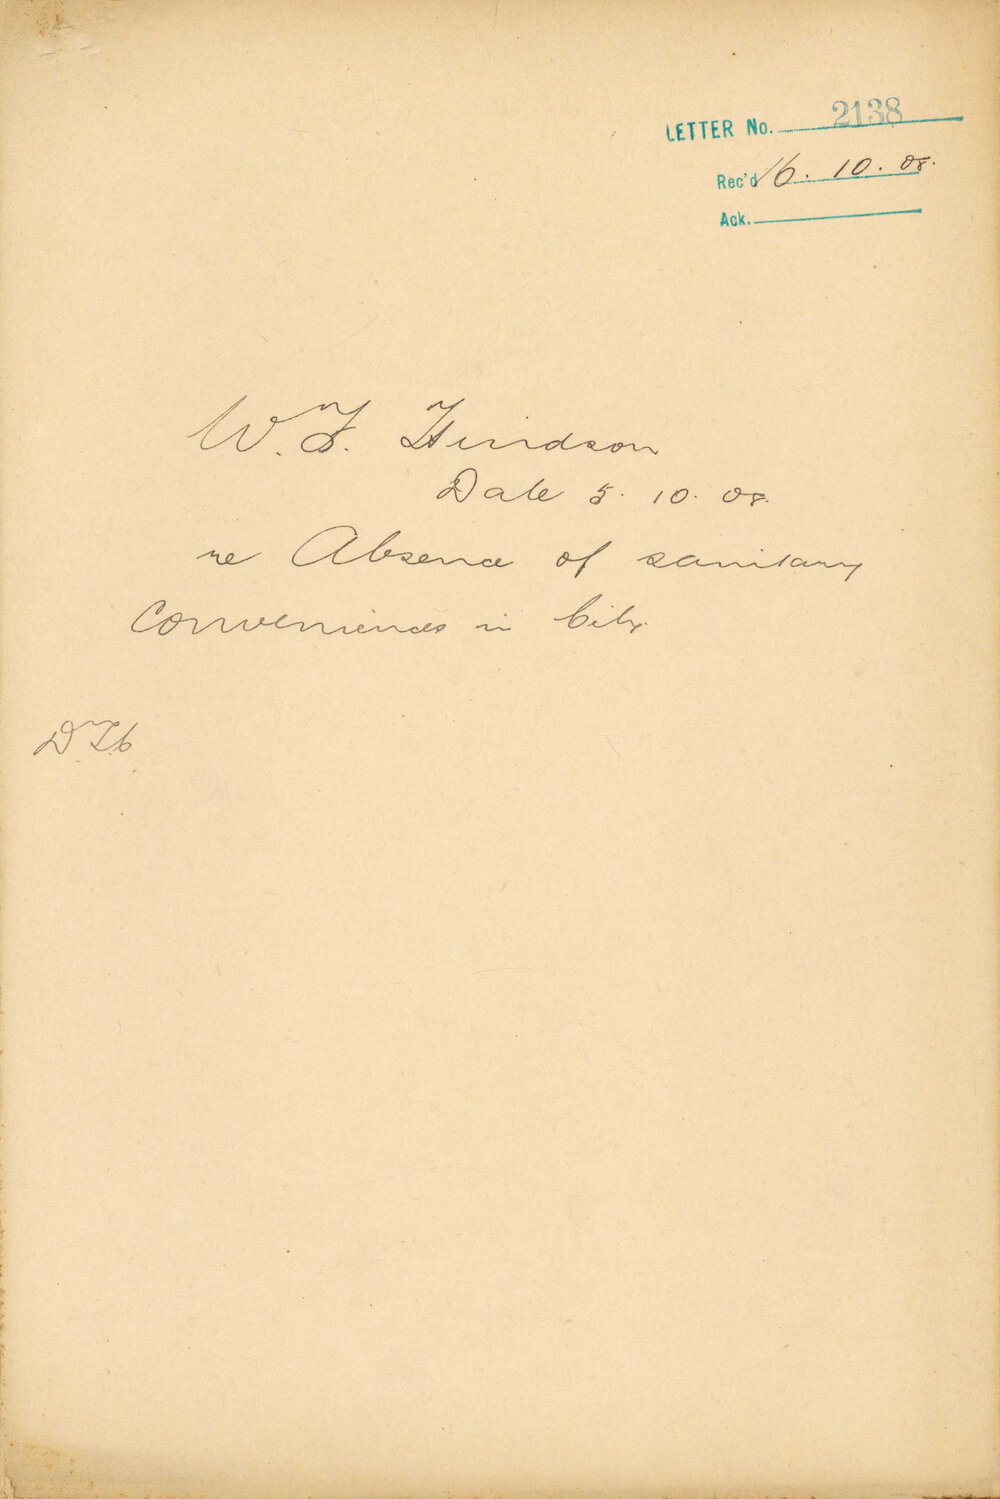 LETTER No. 2138
Rec'd 16. 10. 08.
Ack.
W. F. Hindson
Date 5. 10. 08.
re Absence of sanitary
conveniences in City.